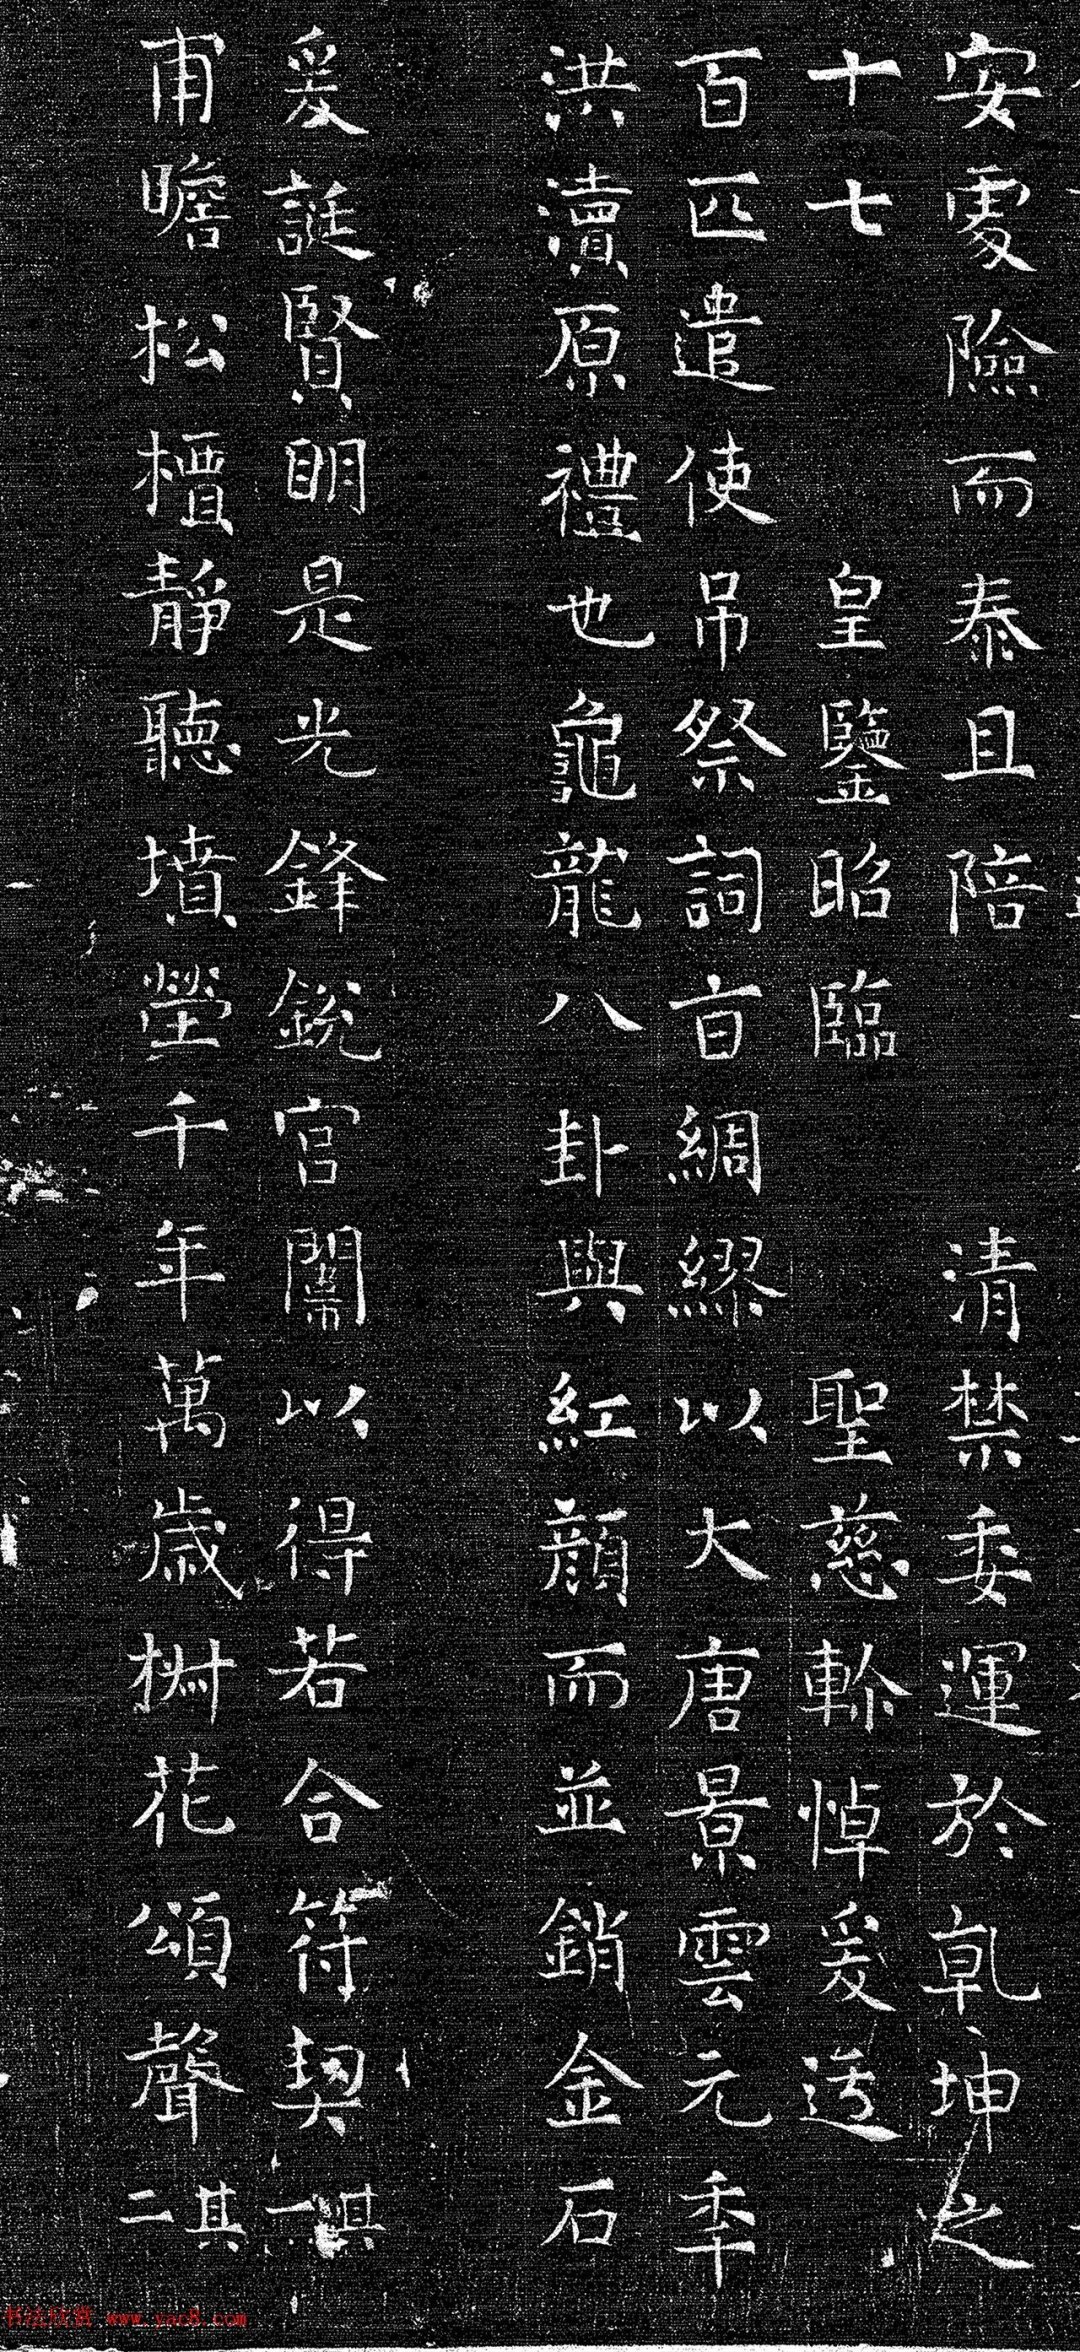 安處險而泰且陪 清禁委運於乹坤之
十七 皇鑒昭臨 聖慈軫悼爰送
百匹遣使吊祭詞旨綢繆以大唐景雲元秊
洪瀆原禮也龜龍八卦與紅顔而並銷金石
爰誕賢明是光鋒銳官闈以得若合符契其一
甫瞻松檟靜聽墳塋千年萬歲椒花頌聲其二
书法欣赏 www.yac8.com